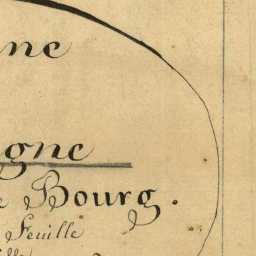 ne
gne
e Bourg.
Feuille
lle